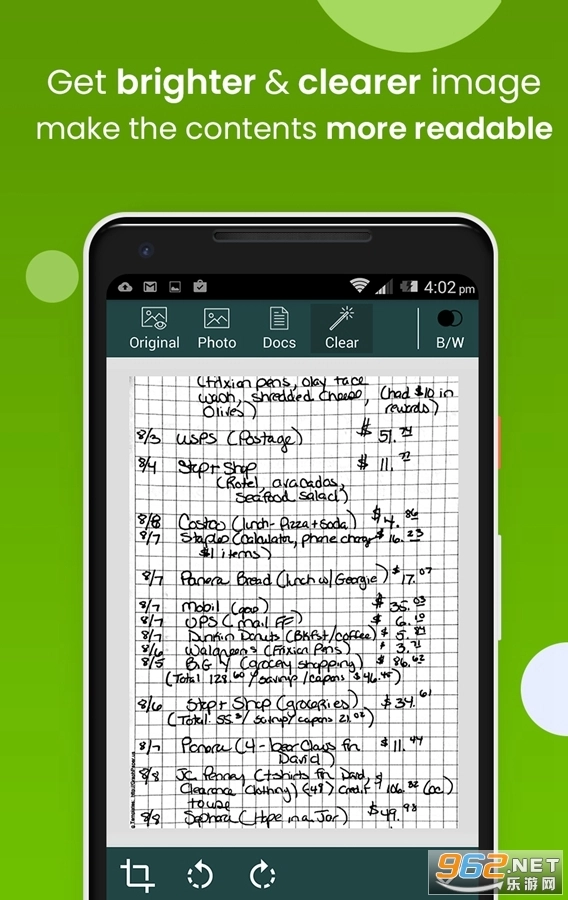 Get brighter & clearer image
make the contents more readable
4:02 pm
Original Photo Docs Clear B/W
(frixion pens, olay face
wash, shredded cheese, (had $10 in
Olives) rewards)
8/3 USPS (Postage) $ 51.74
8/4 Stop + Shop $ 11.77
(Rotel, avacados,
seafood salad)
8/8 Costco (lunch - Pizza + soda) $ 4.86
8/7 Staples (Calculator, phone charger $ 16.23
$1 items)
8/7 Panera Bread (lunch w/ Georgie) $ 17.07
8/7 Mobil (gas) $ 35.03
8/7 UPS (mail FF) $ 6.10
8/7 Dunkin Donuts (Bkfst/coffee) $ 5.84
8/6 Walgreens (Frixion Pens) $ 3.71
8/5 BIG Y (grocery shopping) $ 86.62
(Total 128.60 / savings / coupons $ 46.45)
8/6 Stop + Shop (groceries) $ 34.61
(Total 55 / savings / coupons 21.02)
8/7 Panera (4 - bear claws for $ 11.44
David)
8/8 JC Penney (tshirts for David, $
Clearance Clothing) (48) credit 106.82 (cc)
to use
8/8 Sephora (Hope in a Jar) $ 49.98
962.NET
乐游网